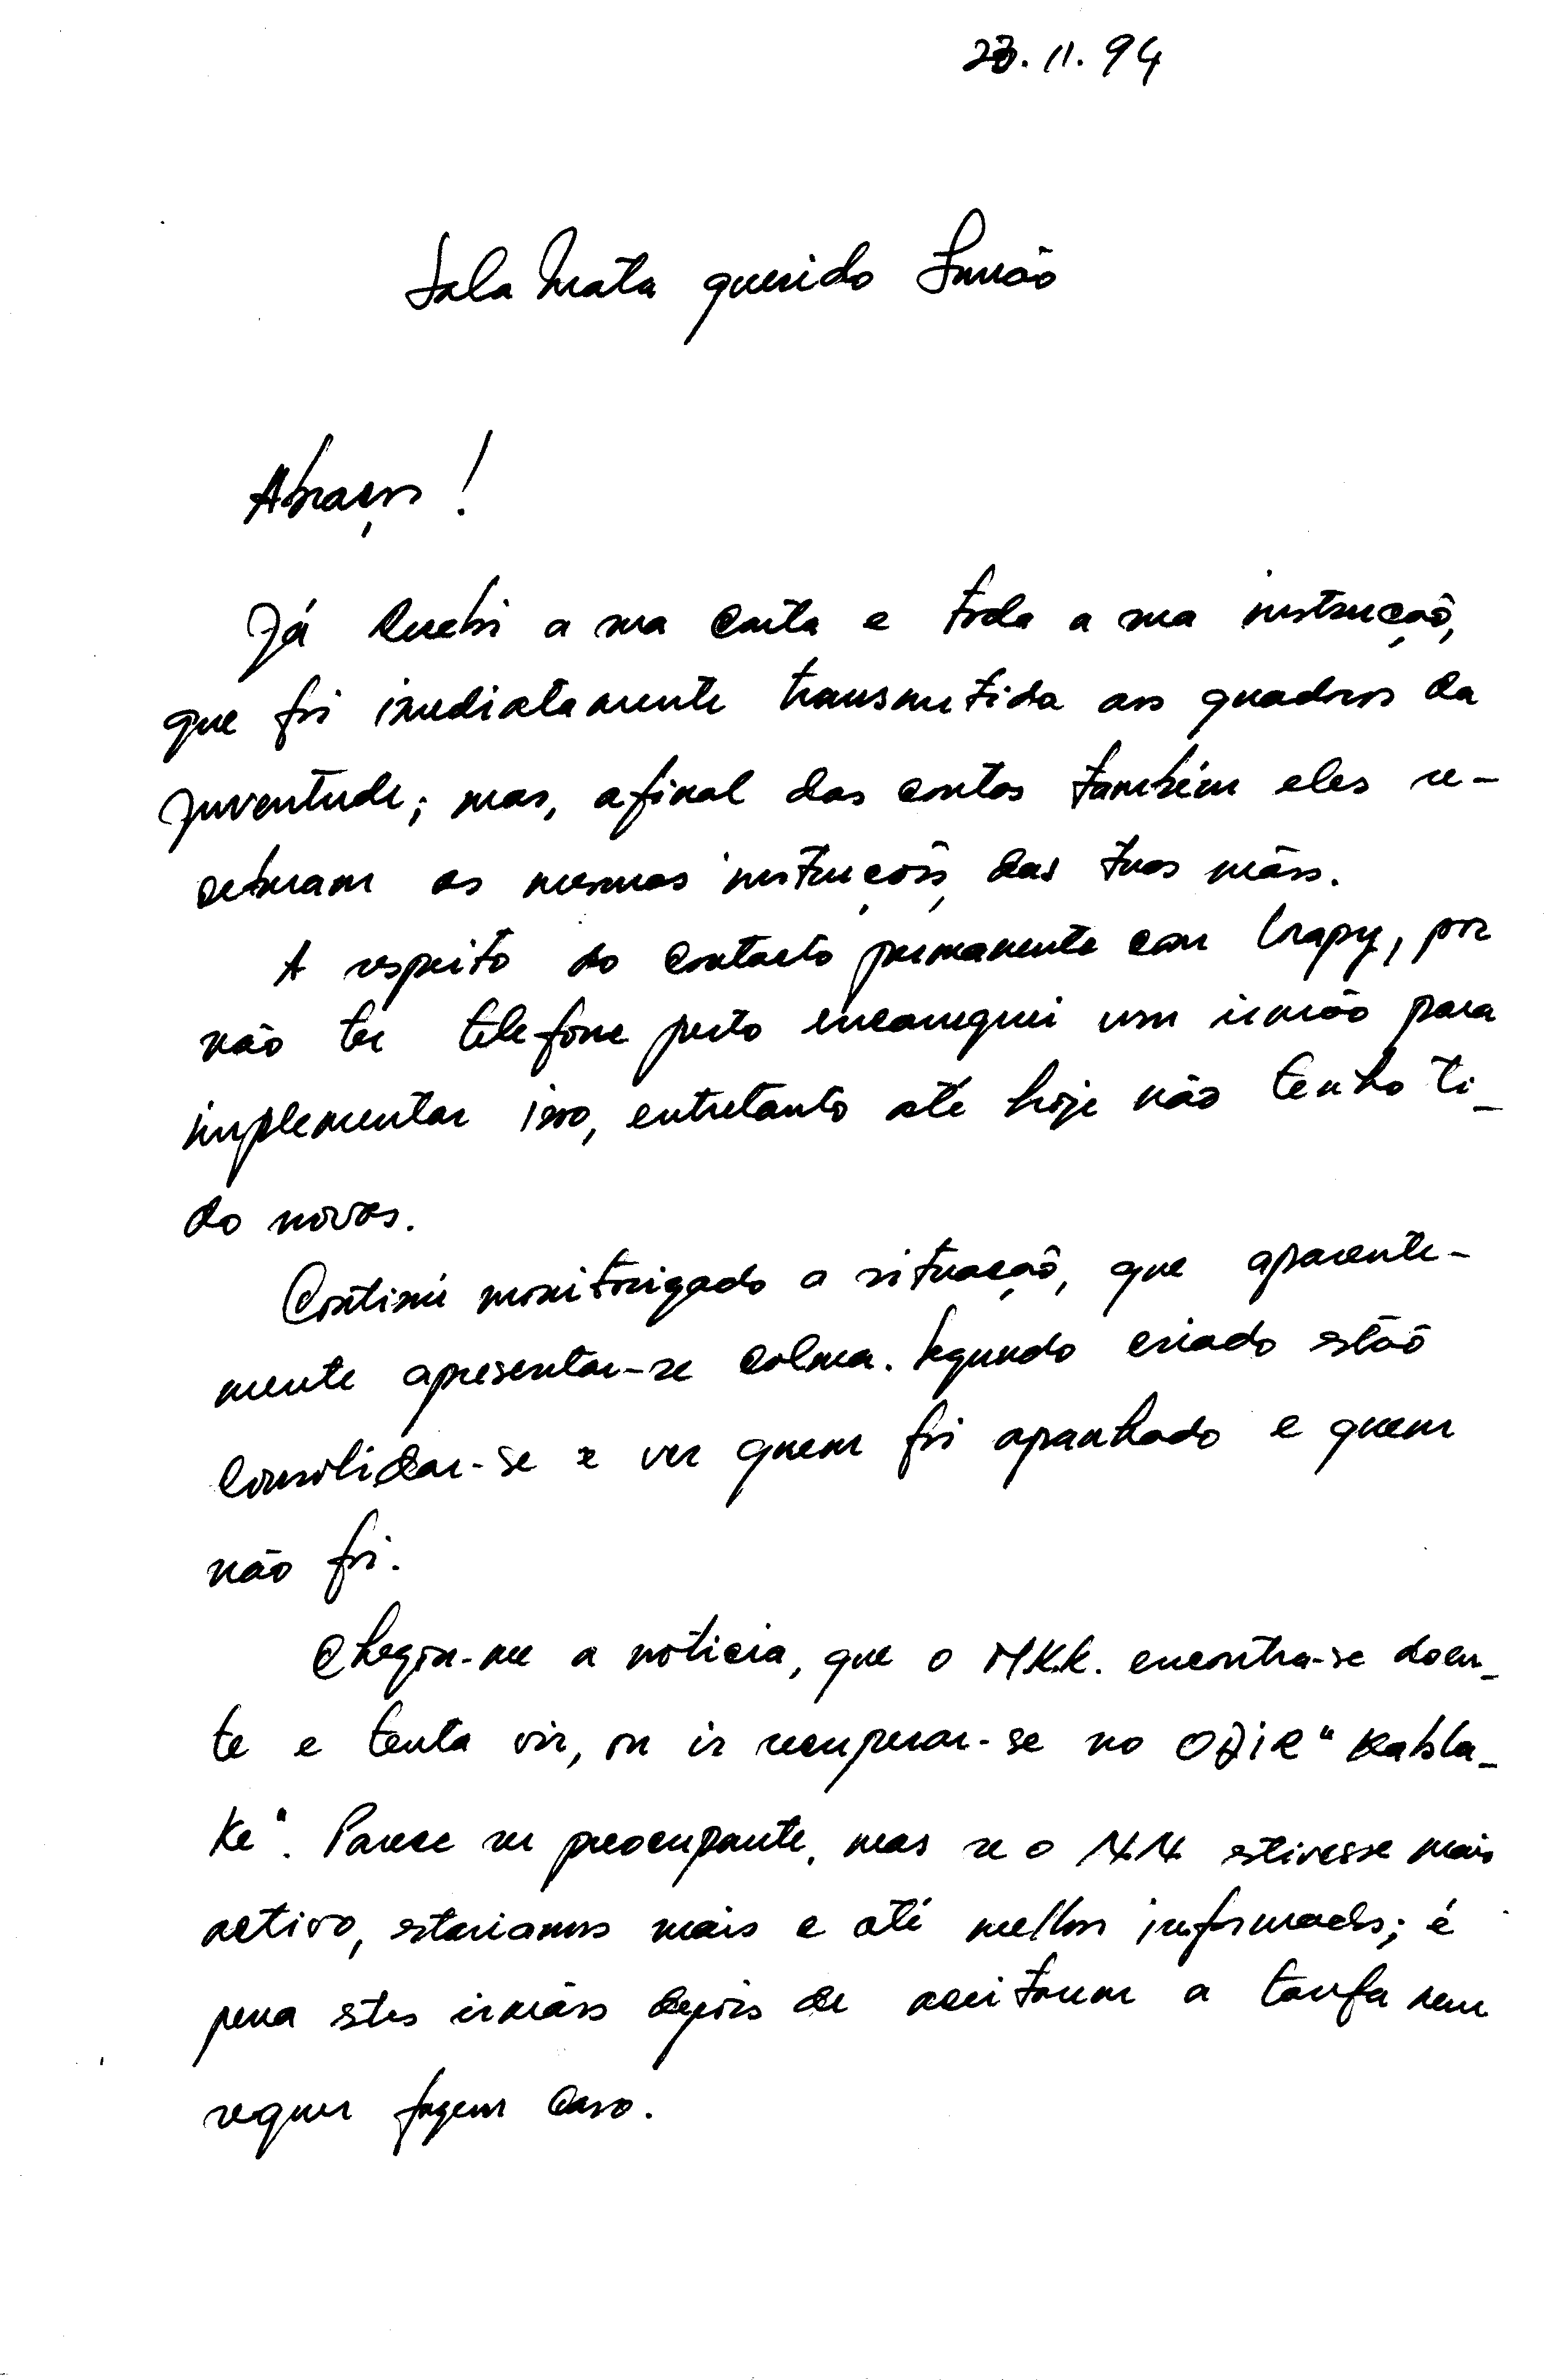 23.11.94
Sala Mata querido Irmão
Abraços!
Já Recebi a sua carta e toda a sua instrução,
que foi imediatamente transmitida aos quadros da
juventude; mas, afinal das contas também eles re-
ceberam as mesmas instruçoẽs das tuas mãos.
A respeito do contacto permanente com Crapy, por
não ter telefone perto encarreguei um irmão para
implementar isso, entretanto até hoje não tenho ti-
do novas.
Continúi monitorigado a situação, que aparente-
mente apresentar-se calma. Segundo criado estão
consolidar-se e ver quem foi apanhado e quem
não foi.
Chegou-me a noticia, que o MKK. encontra-se doen-
te e tenta vir, ou ir recuperar-se no OJIR "Kabla-
Ke". Parece ser preocupante, mas se o estivesse mais
activo, estariamos mais e até melhor informados; é
pena estes irmãos depois de aceitarem a tarefa nem
sequer fazem caso.